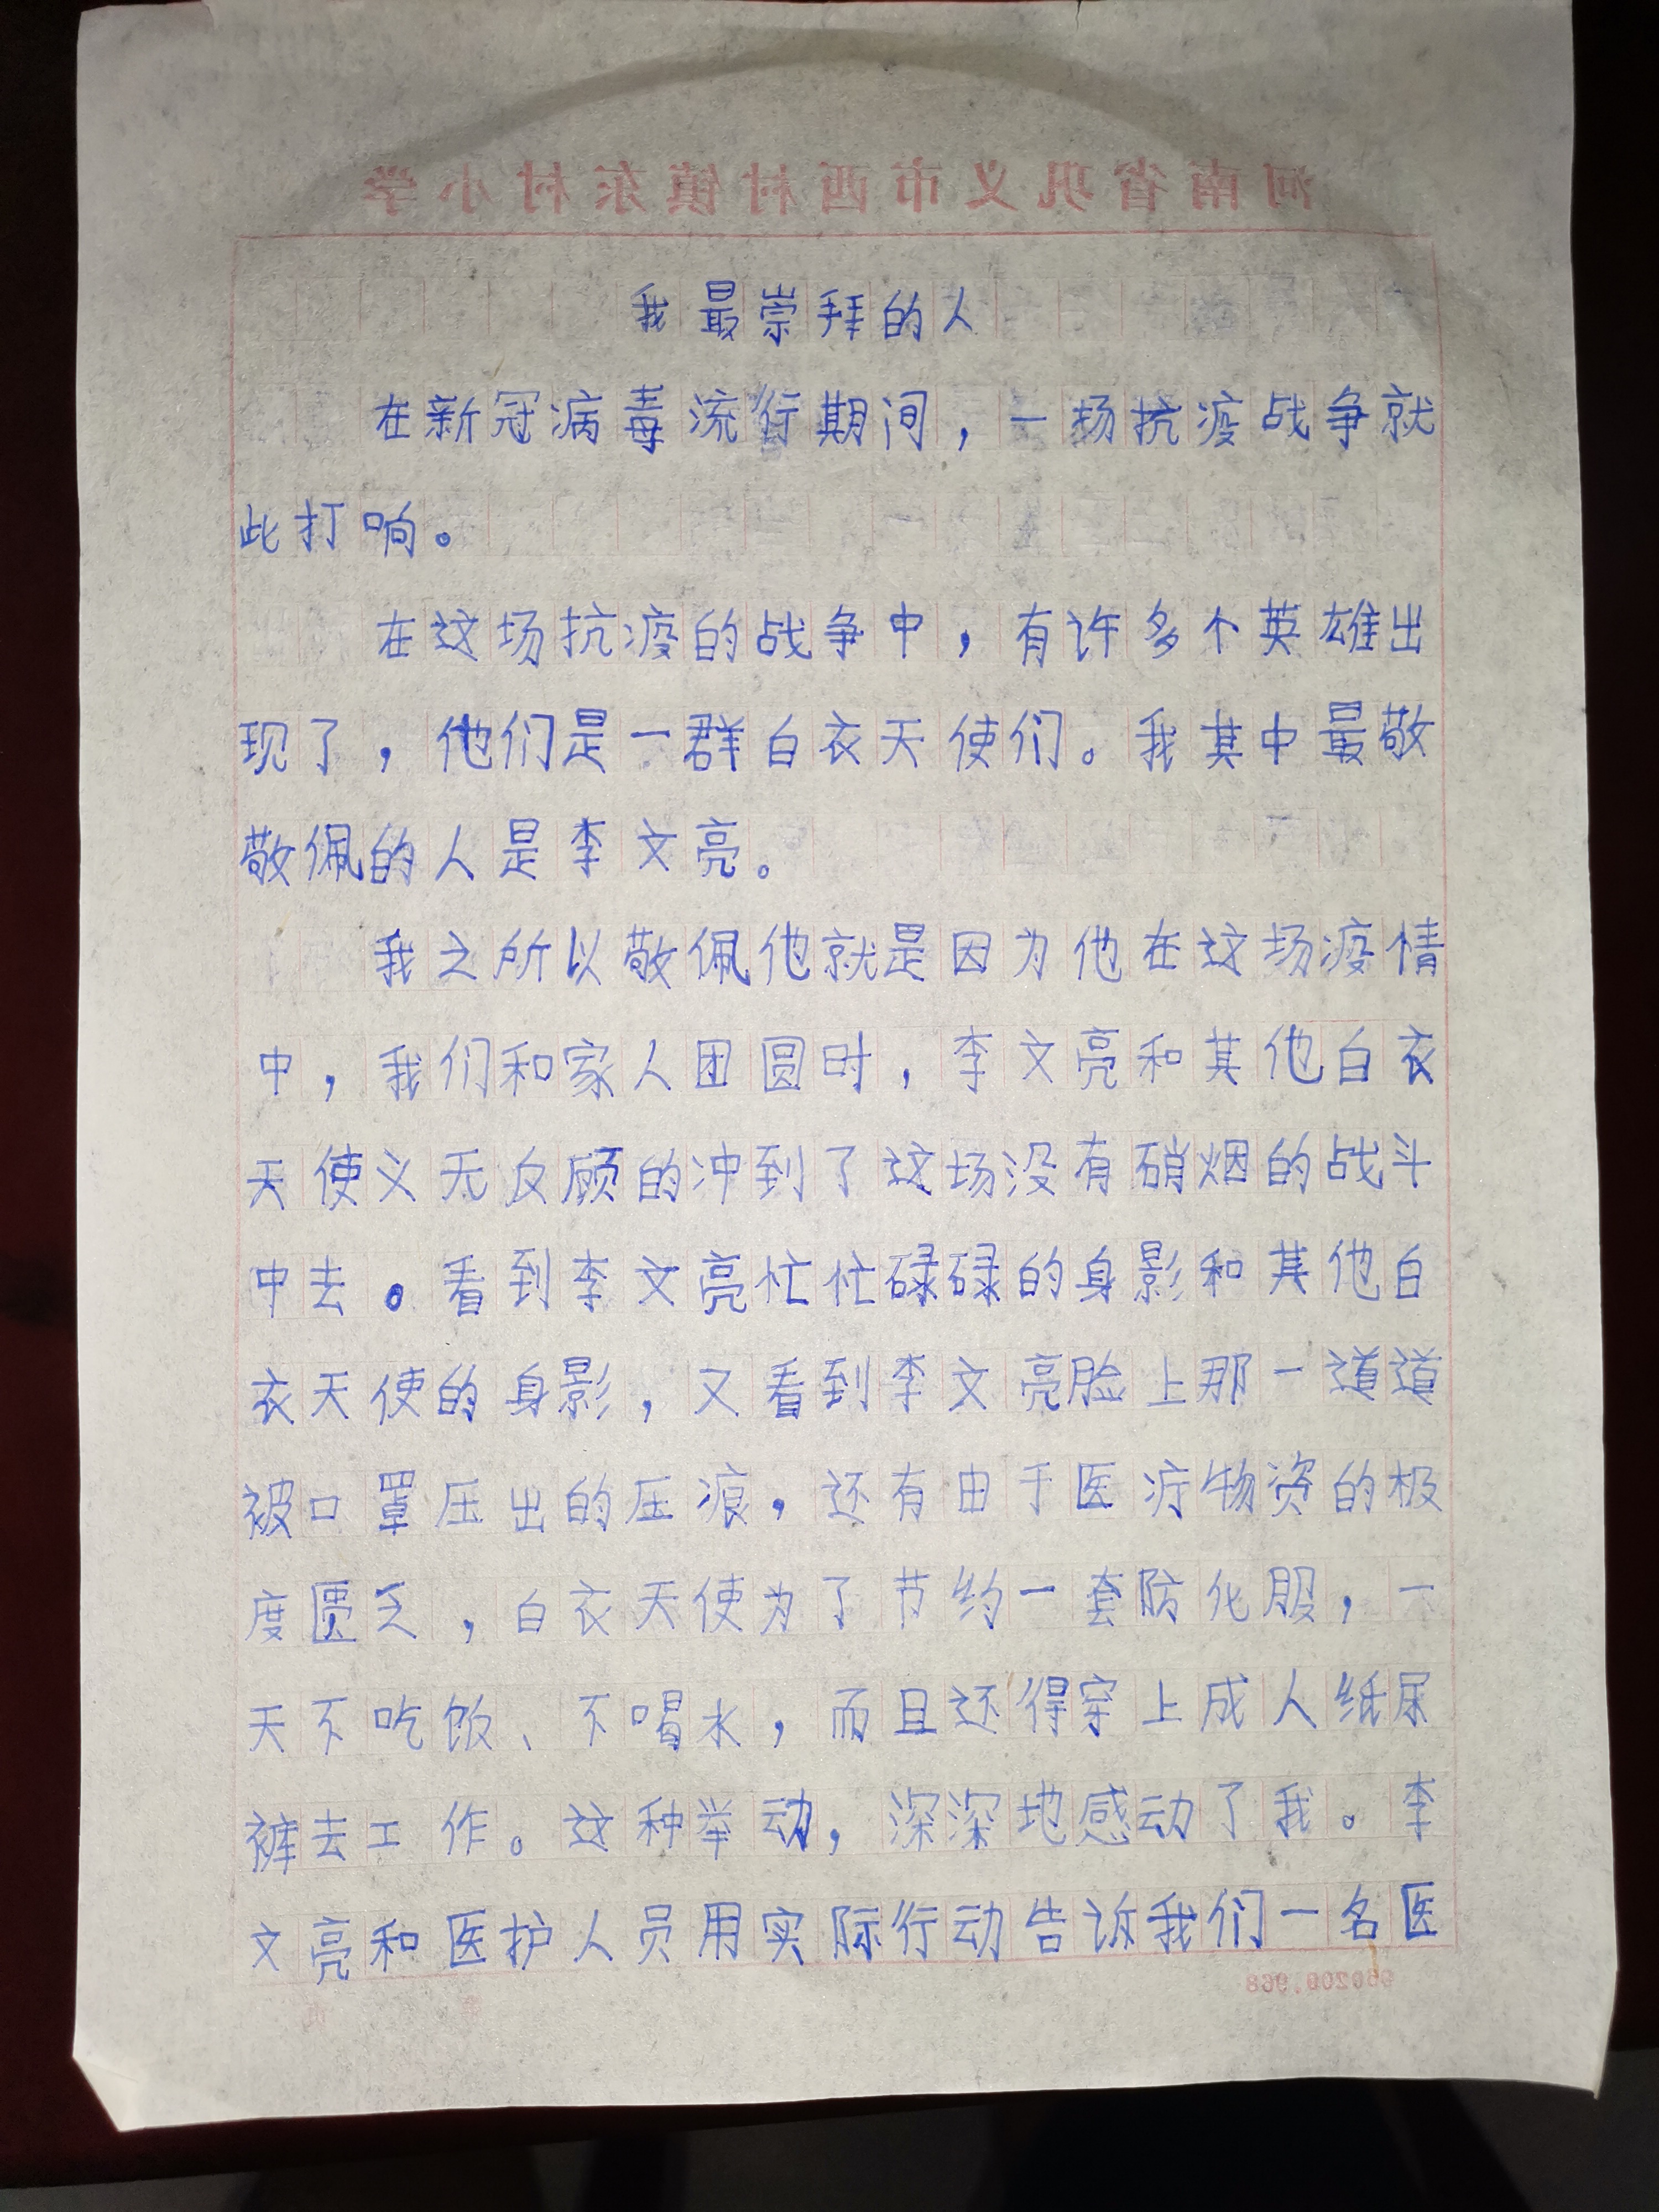 河南省巩义市西村镇东村小学
我最崇拜的人
在新冠病毒流行期间，一扬抗疫战争就
此打响。
在这场抗疫的战争中，有许多个英雄出
现了，他们是一群白衣天使们。我其中最敬
敬佩的人是李文亮。
我之所以敬佩他就是因为他在这场疫情
中，我们和家人团圆时，李文亮和其他白衣
天使义无反顾的冲到了这场没有硝烟的战斗
中去。看到李文亮忙忙碌碌的身影和其他白
衣天使的身影，又看到李文亮脸上那一道道
被口罩压出的压痕，还有由于医疗物资的极
度匮乏，白衣天使为了节约一套防化服，一
天不吃饭、不喝水，而且还得穿上成人纸尿
裤去工作。这种举动，深深地感动了我。李
文亮和医护人员用实际行动告诉我们一名医
960200.968